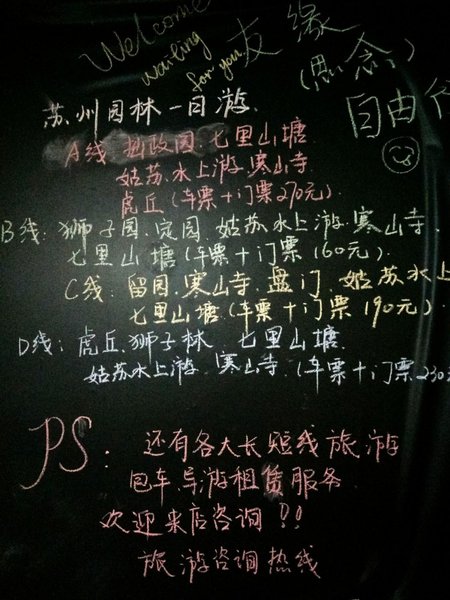 Welcome
waiting
for you 友缘
(思念)
自由行
苏州园林一日游.
A线 拙政园.七里山塘
姑苏水上游.寒山寺
虎丘(车票+门票270元)
B线:狮子园.定园.姑苏水上游.寒山寺.
七里山塘(车票+门票160元).
C线:留园.寒山寺.盘门.姑苏水上
七里山塘(车票+门票190元)
D线:虎丘.狮子林.七里山塘.
姑苏水上游.寒山寺.(车票+门票230
PS:还有各大长短线旅游
包车.导游租赁服务.
欢迎来店咨询!!
旅游咨询热线